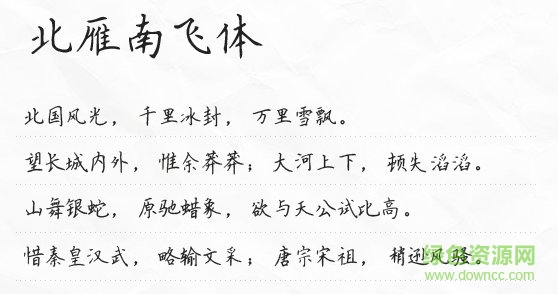 北雁南飞体
北国风光，千里冰封，万里雪飘。
望长城内外，惟余莽莽；大河上下，顿失滔滔。
山舞银蛇，原驰蜡象，欲与天公试比高。
惜秦皇汉武，略输文采；唐宗宋祖，稍逊风骚。
绿色资源网
www.downcc.com